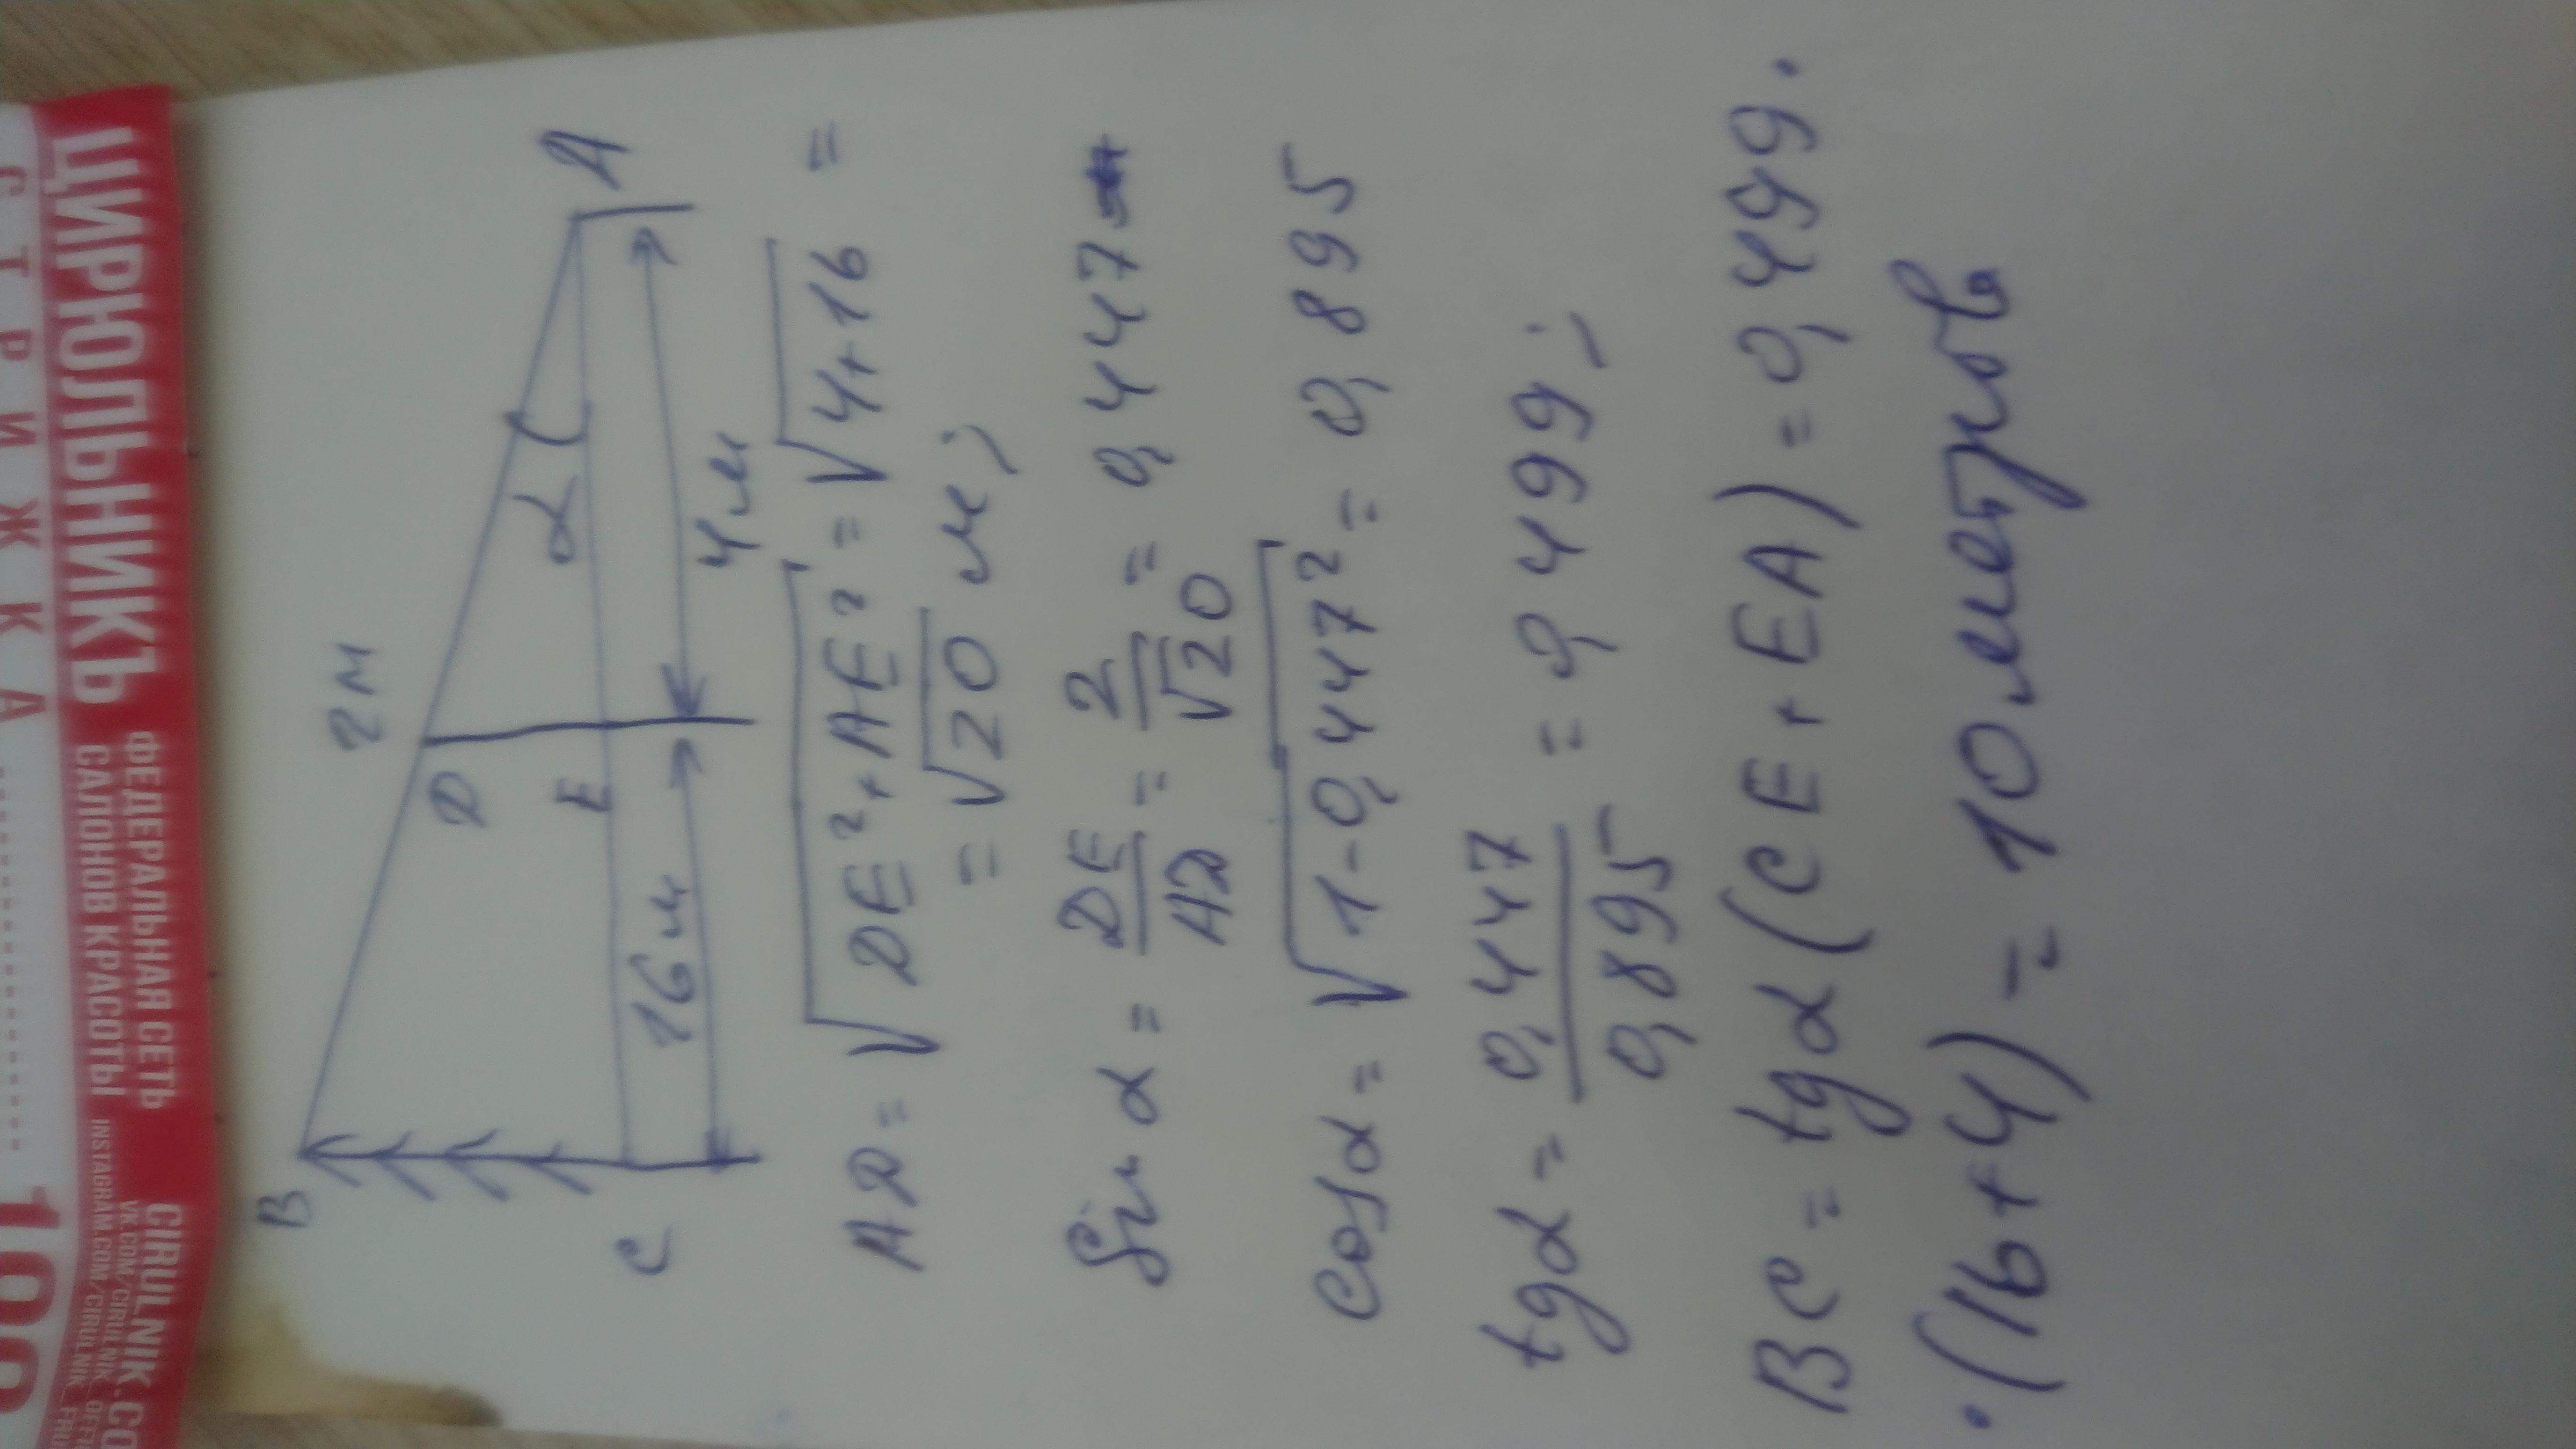 СТРИЖКА
100
ЦИРЮЛЬНИКЪ
ФЕДЕРАЛЬНАЯ СЕТЬ
САЛОНОВ КРАСОТЫ
CIRULNIK.CO
VK.COM/CIRULNIK_OFFI
INSTAGRAM.COM/CIRULNIK_FRU
B
2 м
D
α
A
E
C
16 м
4 м
AD = √DE² + AE² = √4+16 =
= √20 м;
Sin α = DE/AD = 2/√20 = 0,447
Cos α = √1-0,447² = 0,895
tg α = 0,447/0,895 = 0,499;
BC = tg α (CE + EA) = 0,499 ·
· (16+4) = 10 метров